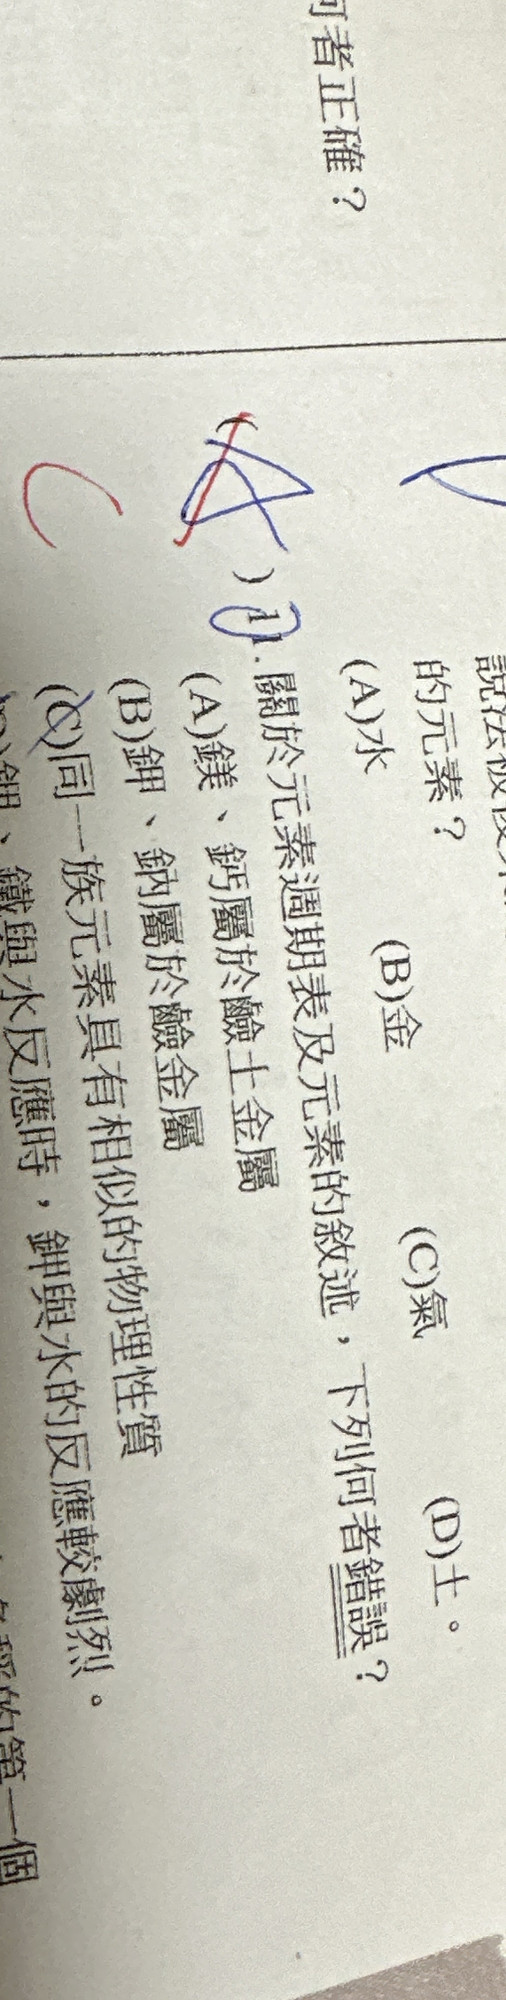 何者正確？
的元素？
(A)水 (B)金 (C)氣 (D)土。
A
C
( )11.關於元素週期表及元素的敘述，下列何者錯誤？
(A)鎂、鈣屬於鹼土金屬
(B)鉀、鈉屬於鹼金屬
(C)同一族元素具有相似的物理性質
(D)鉀、鐵與水反應時，鉀與水的反應較劇烈。
的第一個